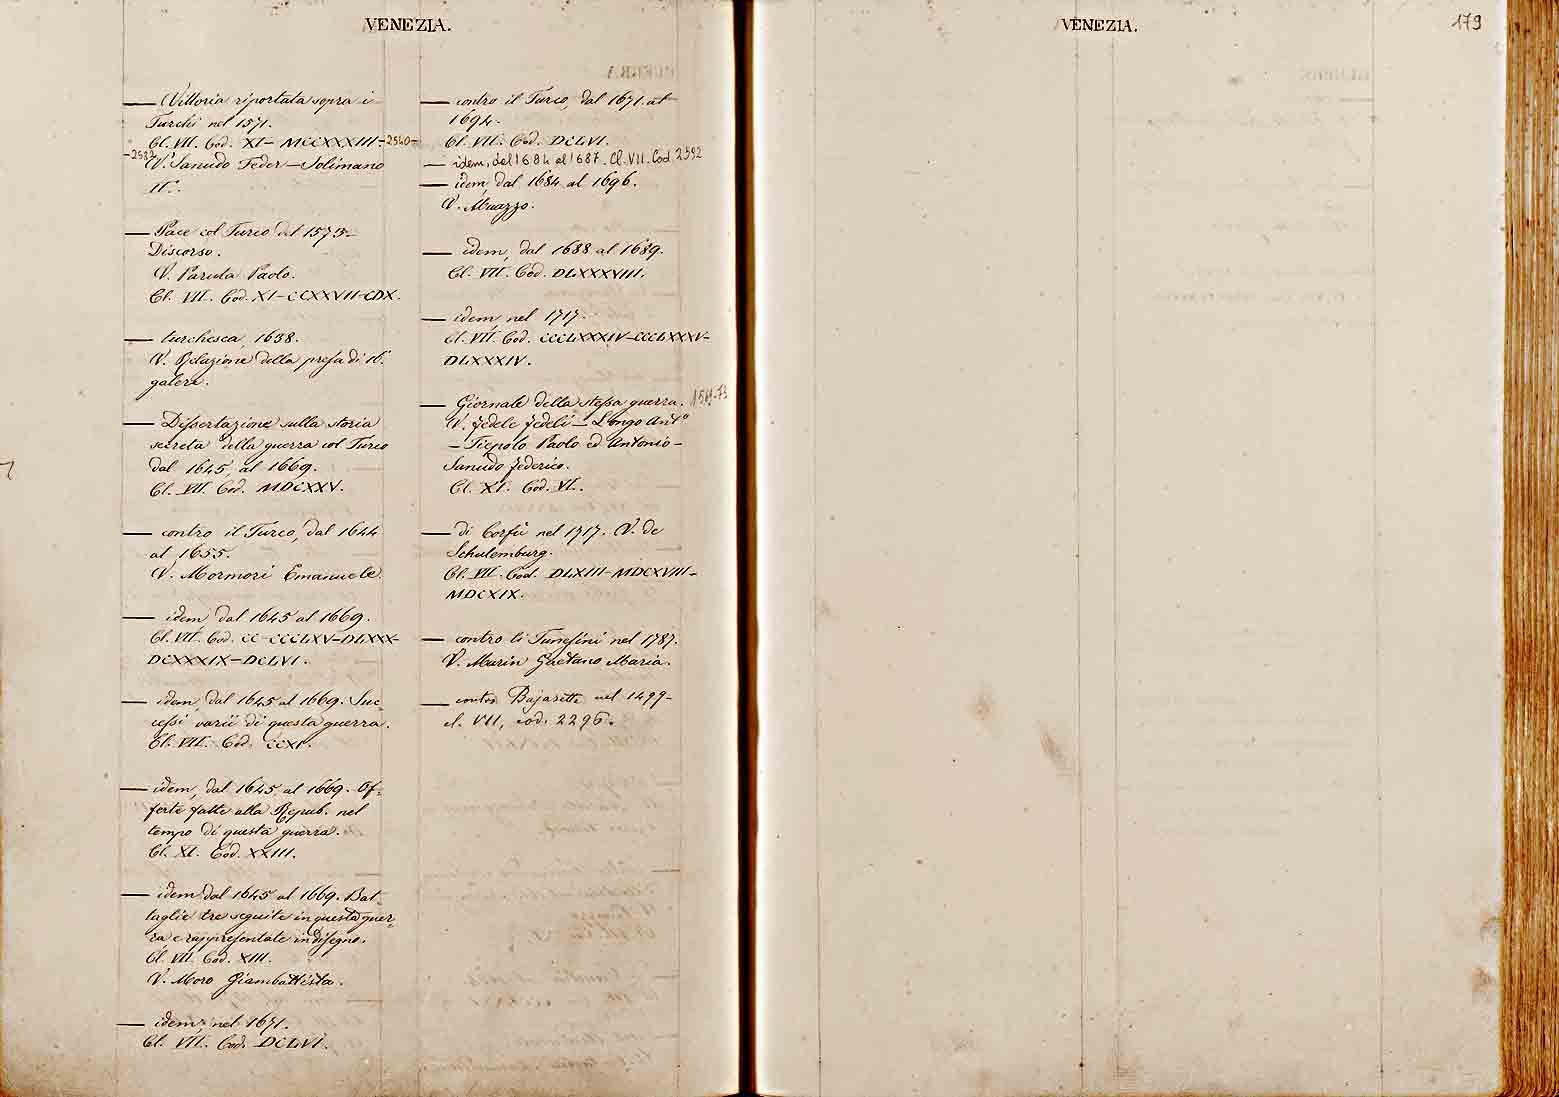 VENEZIA.
— Vittoria riportata sopra i
Turchi nel 1571.
Cl. VII. Cod. XI – MCCXXXIII – 2540 –
– 2582
V. Sanudo Feder – Solimano
II.°
— Pace col Turco del 1573 –
Discorso.
V. Paruta Paolo.
Cl. VII. Cod. XI – CCXXVII – CDX.
— turchesca, 1638.
V. Relazione della presa di 16.
galere.
— Dissertazione sulla storia
secreta della guerra col Turco
dal 1645, al 1669.
Cl. VII. Cod. MDCXXV.
— contro il Turco, dal 1644
al 1655.
V. Mormori Emanuele
— idem dal 1645 al 1669.
Cl. VII. Cod. CC – CCCLXV – DLXXX –
DCXXXIX – DCLVI.
— idem, dal 1645 al 1669. Suc-
cessi varii di questa guerra.
Cl. VII. Cod. CCXI.
— idem, dal 1645 al 1669. Of-
ferte fatte alla Repub. nel
tempo di questa guerra.
Cl. XI. Cod. XXIII.
— idem dal 1645 al 1669. Bat-
taglie tre seguite in questa guer-
ra e rappresentate in disegno.
Cl. VII. Cod. XIII.
V. Moro Giambattista.
— idem, nel 1671.
Cl. VII. Cod. DCLVI.
— contro il Turco, dal 1671. al
1694.
Cl. VII. Cod. DCLVI.
— idem, del 1684 al 1687. Cl. VII. Cod 2592
— idem, dal 1684 al 1696.
V. Muazzo.
— idem, dal 1688 al 1689.
Cl. VII. Cod. DLXXXVIII.
— idem nel 1717.
Cl. VII. Cod. CCCLXXXIV – CCCLXXXV –
DLXXXIV.
— Giornale della stessa guerra.
V. Fedele Fedeli – Longo Ant°
– Tiepolo Paolo ed Antonio –
Sanudo Federico.
Cl. XI. Cod. VI.
— di Corfù nel 1717. V. de
Schulemburg.
Cl. VII. Cod. DLXIII – MDCXVIII –
MDCXIX.
— contro li Tunesini nel 1787.
V. Marin Gaetano Maria.
— contro Bajasette nel 1499 –
cl. VII, cod. 2296.
VENEZIA.
179